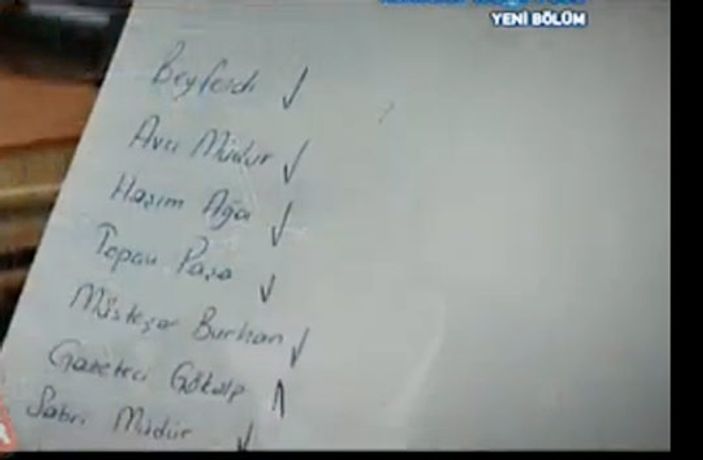 YENİ BÖLÜM
Beyfendi ✓
Avcı Müdür ✓
Haşim Ağa ✓
Topau Paşa ✓
Müsteşar Burhan ✓
Gazeteci Gökalp
Sabri Müdür ✓